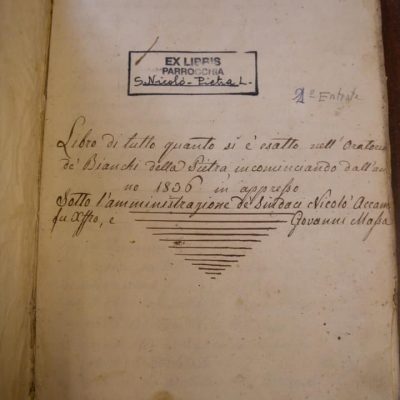 EX LIBRIS
PARROCCHIA
S. Nicolò - Pietra L.
1º Entrate
Libro di tutto quanto si è esatto nell'Oratorio
de' Bianchi della Pietra incominciando dall'an
no 1836 in appresso
Sotto l'amministrazione de' Sindaci Nicolò Accame
fu Xffro, e Giovanni Massa